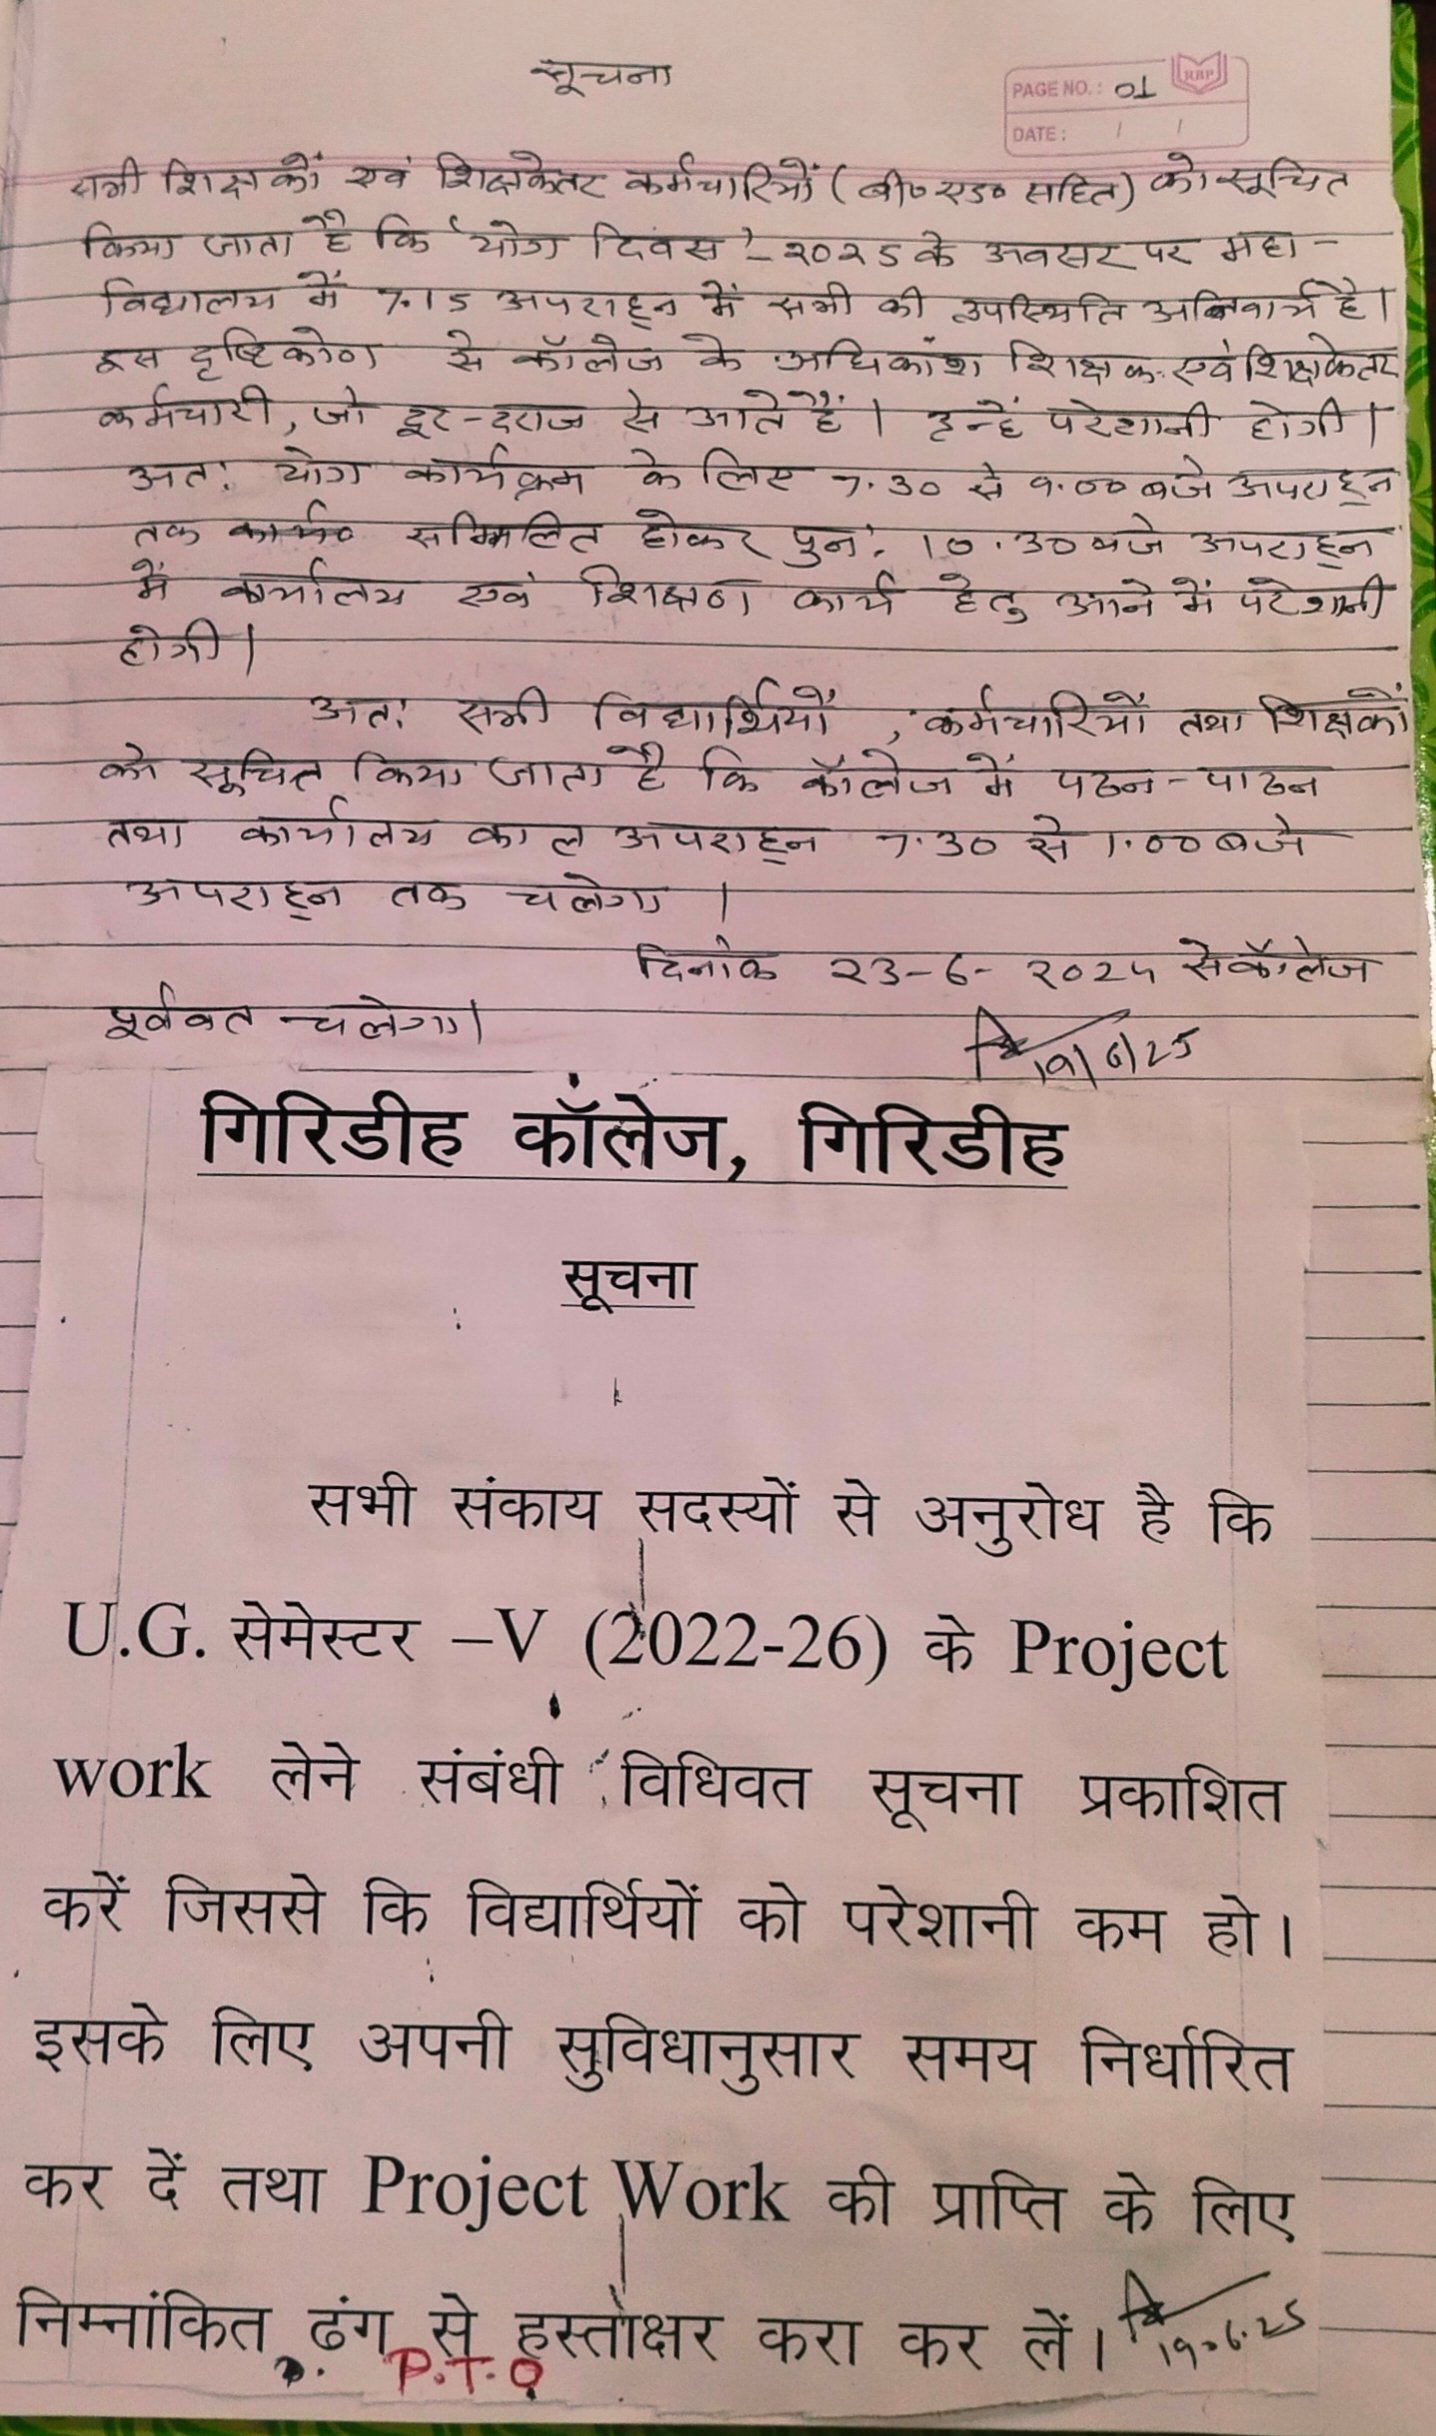 सूचना
PAGE NO.: 01
RBP
DATE: / /
सभी शिक्षकों एवं शिक्षकेतर कर्मचारियों (बी० एड० सहित) को सूचित
किया जाता है कि 'योग दिवस'- 2025 के अवसर पर महा-
विद्यालय में 7.15 अपराह्न में सभी की उपस्थिति अनिवार्य है।
इस दृष्टिकोण से कॉलेज के अधिकांश शिक्षक एवं शिक्षकेतर
कर्मचारी, जो दूर-दराज से आते हैं। इन्हें परेशानी होगी।
अतः योग कार्यक्रम के लिए 7.30 से 9.00 बजे अपराह्न
तक सम्मिलित होकर पुनः 10.30 बजे अपराह्न
में कार्यालय एवं शिक्षण कार्य हेतु आने में परेशानी
होगी।
अतः सभी विद्यार्थियों, कर्मचारियों तथा शिक्षकों
को सूचित किया जाता है कि कॉलेज में पठन-पाठन
तथा कार्यालय काल अपराह्न 7.30 से 1.00 बजे
अपराह्न तक चलेगा।
दिनांक 23-6-2025 से कॉलेज
पूर्ववत चलेगा।
19/6/25
गिरिडीह कॉलेज, गिरिडीह
सूचना
सभी संकाय सदस्यों से अनुरोध है कि
U.G. सेमेस्टर –V (2022-26) के Project
work लेने संबंधी विधिवत सूचना प्रकाशित
करें जिससे कि विद्यार्थियों को परेशानी कम हो।
इसके लिए अपनी सुविधानुसार समय निर्धारित
कर दें तथा Project Work की प्राप्ति के लिए
निम्नांकित ढंग से हस्ताक्षर करा कर लें। 19.6.25
P.T.O